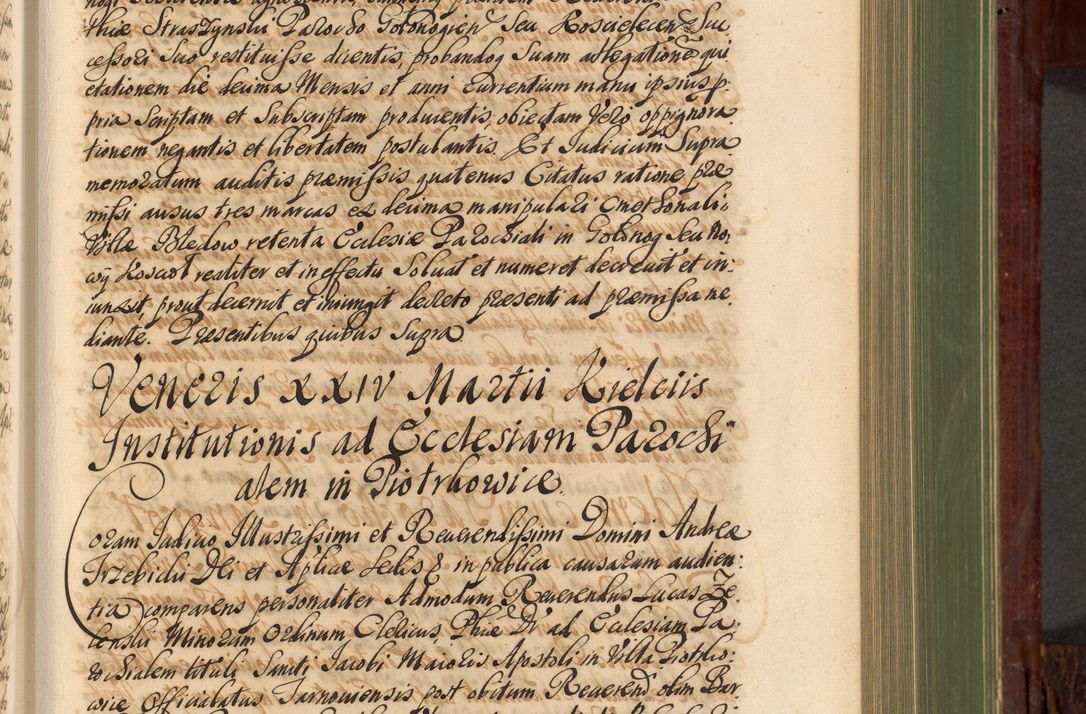 thiæ Straszynski Parocho Gołonogien Seu Kosciełecen Suc
cessori Suo restituisse dicentis, probandoq Suam allegatione qui
etationem die decima Mensis et anni currentium manu ipsius p.
pria Scriptam et Subscriptam producentis, obiectam Vero oppignora
tionem negantis et libertatem postulantis. Et Judicium Supra
memoratum auditis præmissis, quatenus Citatus ratione præ
missi ausus tres marcas ex decima manipulari Cmethonali
Villæ Błędow retenta Ecclesiæ Parochiali in Gołonog Seu No
wy Kosciół realiter et in effectu Soluat et numeret decreuit et in:
iunxit, prout decernit et iniungit decreto præsenti ad præmissa me
diante. Præsentibus quibus Supra
Veneris XXIV Martii Kielciis
Institutionis ad Ecclesiam Parochi
alem in Piotrkowice.
Coram Judicio Illustrissimi et Reuerendissimi Domini Andreæ
Trzebicki Dei et Aplicæ Sedis & in publica causarum audien:
tia comparens personaliter Admodum Reuerendus Lucas Ze
lenski Minorum Ordinum Clericus, Phiæ Dr ad Ecclesiam Pa
rochialem tituli Sancti Jacobi Maioris Apostoli in Villa Piotrko:
wice Officialatus Tarnouiensis post obitum Reuerend olim Bar